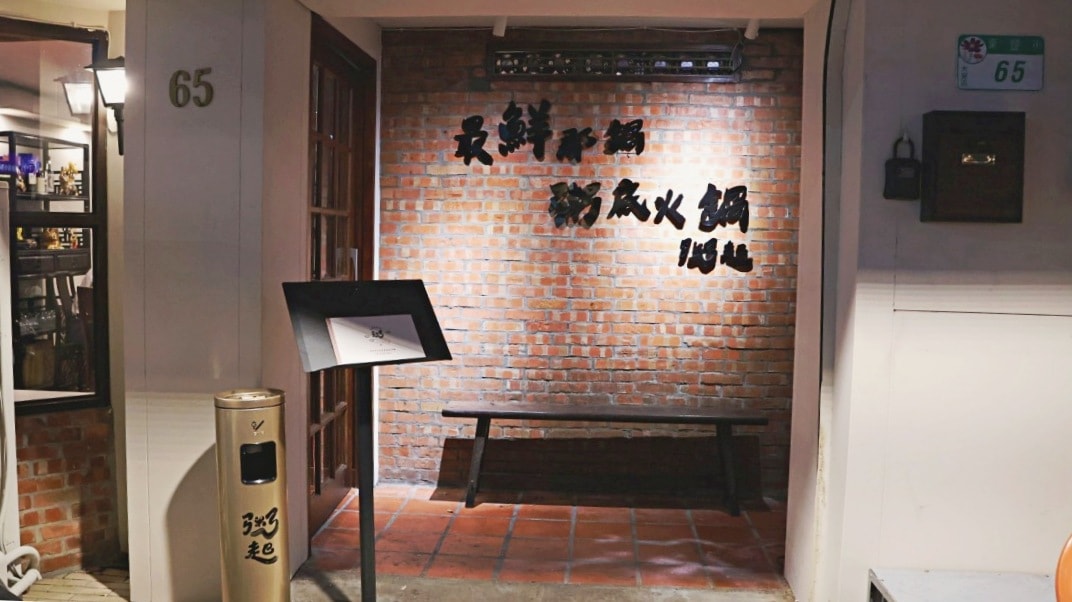 65
最鮮水鍋
粥底火鍋
粥起
65
粥
粥起